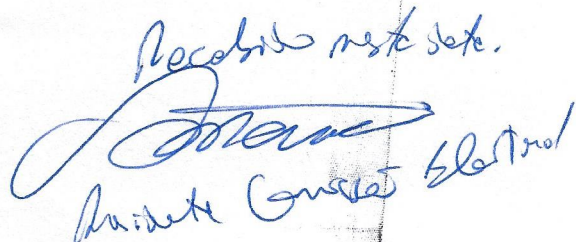 Recebido nesta data.
Presidente Comissão Eleitoral